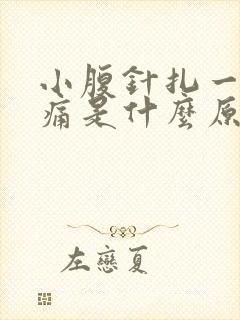 小腹針扎一
痛是什麼原
左戀夏